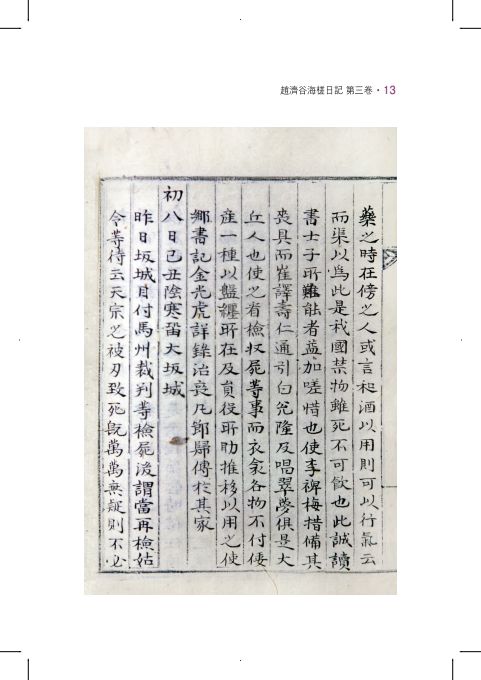 趙濟谷海槎日記 第三卷 · 13
藥之時在傍之人或言和酒以用則可以行氣云
而渠以爲此是我國禁物雖死不可飮也此誠讀
書士子所難能者益加嗟惜也使李裨梅措備其
喪具而崔譯壽仁通引白兊隆及唱翠夢俱是大
丘人也使之看檢収屍等事而衣衾各物不付倭
産一種以盤纏所在及員役所助推移以用之使
鄕書記金光虎詳錄治喪凡節歸傳於其家
初八日己丑陰寒留大坂城
昨日坂城目付馬州裁判等檢屍後謂當再檢姑
令等待云天宗之被刃致死旣萬萬無疑則不必